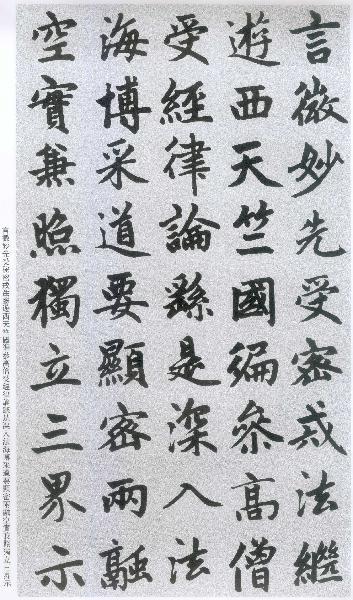 言微妙先受密戒法繼
遊西天竺國徧參高僧
受經律論繇是深入法
海博采道要顯密兩融
空實兼照獨立三界示
言微妙先受密戒法繼遊西天竺國徧參高僧受經律論繇是深入法海博采道要顯密兩融空實兼照獨立三界示